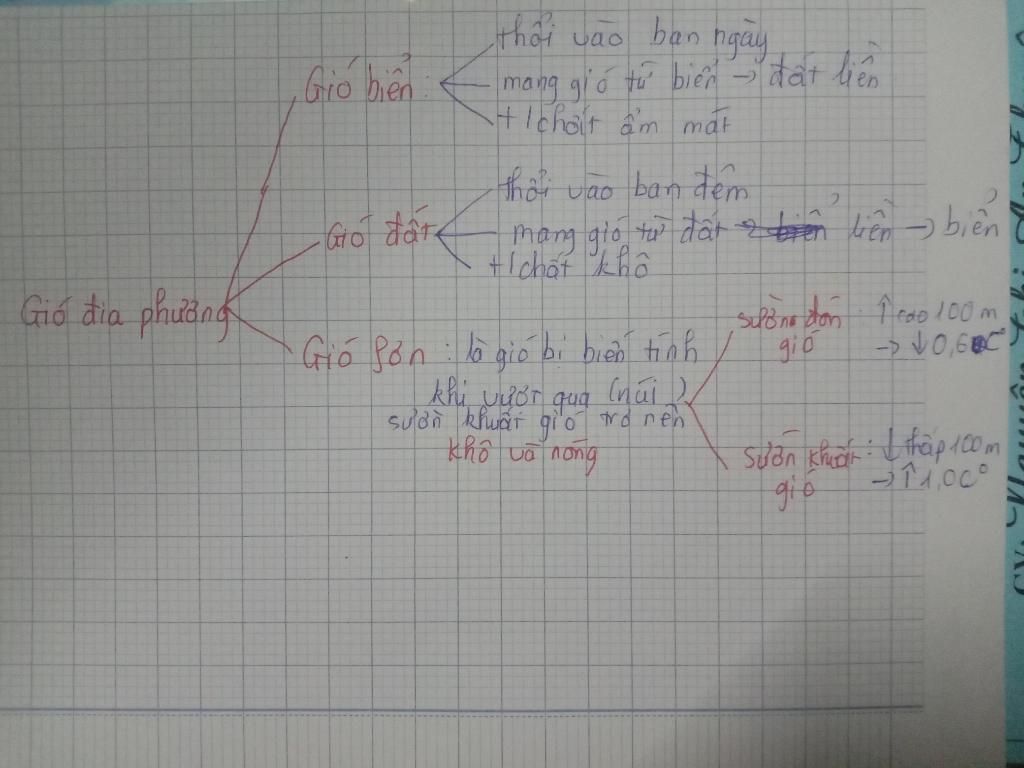 thổi vào ban ngày
Gió biển :
mang gió từ biển → đất liền
+ 1 chất ẩm mát
thổi vào ban đêm
Gió đất
mang gió từ đất liền → biển
+ 1 chất khô
Gió địa phương
Gió fơn : là gió bị biến tính
khi vượt qua (núi)
sườn khuất gió trở nên
khô và nóng
sườn đón gió : ↑ cao 100 m
→ ↓ 0,6 C°
sườn khuất gió : ↓ thấp 100 m
→ ↑ 1,0 C°